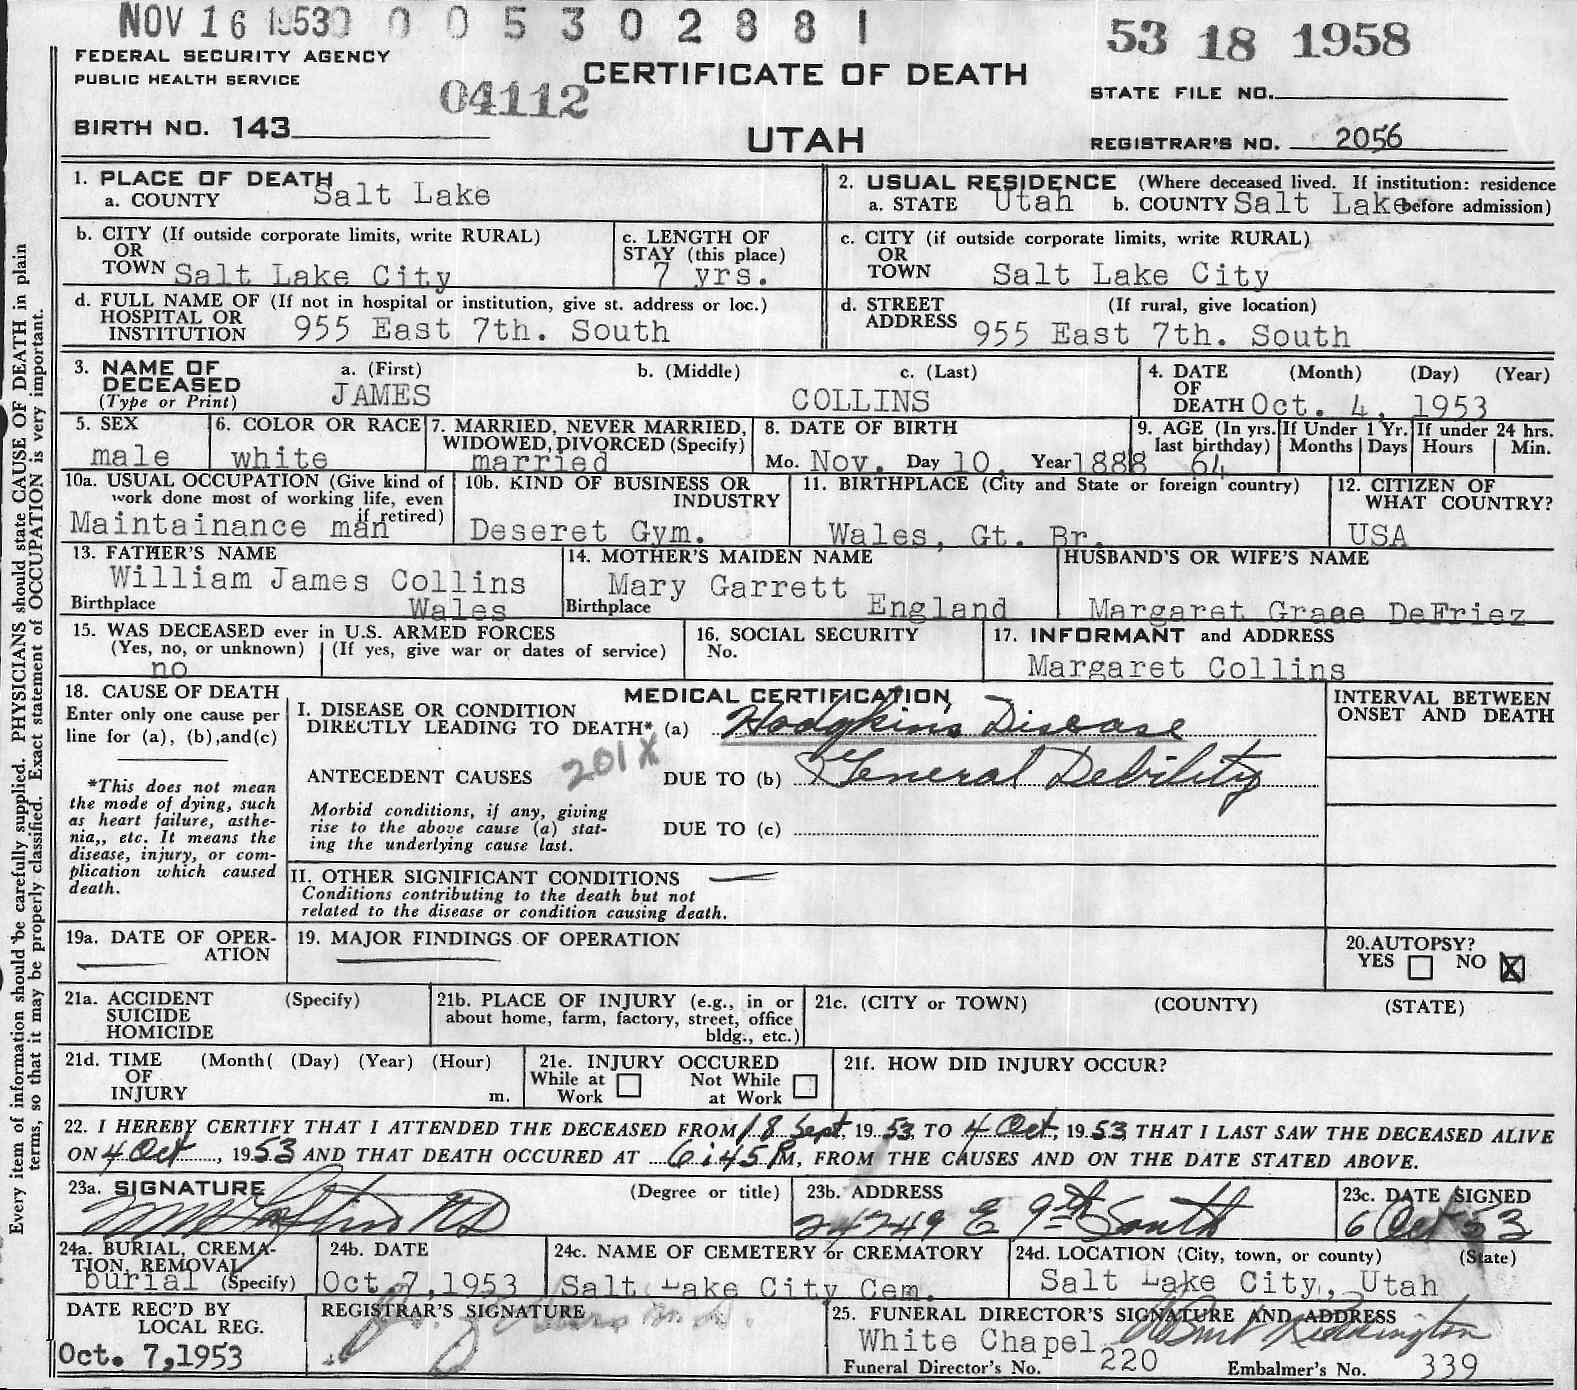 NOV 16 1953 0 0 0 5 3 0 2 8 8 1
53 18 1958
FEDERAL SECURITY AGENCY
PUBLIC HEALTH SERVICE
04112
CERTIFICATE OF DEATH
STATE FILE NO.
BIRTH NO. 143
UTAH
REGISTRAR'S NO. 2056
Every item of information should be carefully supplied. PHYSICIANS should state CAUSE OF DEATH in plain
terms, so that it may be properly classified. Exact statement of OCCUPATION is very important.
1. PLACE OF DEATH
a. COUNTY Salt Lake
2. USUAL RESIDENCE (Where deceased lived. If institution: residence
a. STATE Utah b. COUNTY Salt Lake before admission)
b. CITY (If outside corporate limits, write RURAL)
OR
TOWN Salt Lake City
c. LENGTH OF
STAY (this place)
7 yrs.
c. CITY (if outside corporate limits, write RURAL)
OR
TOWN Salt Lake City
d. FULL NAME OF (If not in hospital or institution, give st. address or loc.)
HOSPITAL OR
INSTITUTION 955 East 7th. South
d. STREET (If rural, give location)
ADDRESS 955 East 7th. South
3. NAME OF a. (First) b. (Middle) c. (Last)
DECEASED
(Type or Print) JAMES COLLINS
4. DATE (Month) (Day) (Year)
OF
DEATH Oct. 4, 1953
5. SEX
male
6. COLOR OR RACE
white
7. MARRIED, NEVER MARRIED,
WIDOWED, DIVORCED (Specify)
married
8. DATE OF BIRTH
Mo. Nov. Day 10, Year 1888
9. AGE (In yrs.
last birthday)
64
If Under 1 Yr.
Months Days
If under 24 hrs.
Hours Min.
10a. USUAL OCCUPATION (Give kind of
work done most of working life, even
if retired)
Maintainance man
10b. KIND OF BUSINESS OR
INDUSTRY
Deseret Gym.
11. BIRTHPLACE (City and State or foreign country)
Wales, Gt. Br.
12. CITIZEN OF
WHAT COUNTRY?
USA
13. FATHER'S NAME
William James Collins
Birthplace Wales
14. MOTHER'S MAIDEN NAME
Mary Garrett
Birthplace England
HUSBAND'S OR WIFE'S NAME
Margaret Graee DeFriez
15. WAS DECEASED ever in U.S. ARMED FORCES
(Yes, no, or unknown) (If yes, give war or dates of service)
no
16. SOCIAL SECURITY
No.
17. INFORMANT and ADDRESS
Margaret Collins
18. CAUSE OF DEATH
Enter only one cause per
line for (a), (b),and(c)
*This does not mean
the mode of dying, such
as heart failure, asthe-
nia,, etc. It means the
disease, injury, or com-
plication which caused
death.
MEDICAL CERTIFICATION
I. DISEASE OR CONDITION
DIRECTLY LEADING TO DEATH* (a) Hodgkins Disease
201X
ANTECEDENT CAUSES DUE TO (b) General Debility
Morbid conditions, if any, giving
rise to the above cause (a) stat-
ing the underlying cause last.
DUE TO (c)
INTERVAL BETWEEN
ONSET AND DEATH
II. OTHER SIGNIFICANT CONDITIONS
Conditions contributing to the death but not
related to the disease or condition causing death.
19a. DATE OF OPER-
ATION
19. MAJOR FINDINGS OF OPERATION
20.AUTOPSY?
YES NO X
21a. ACCIDENT (Specify)
SUICIDE
HOMICIDE
21b. PLACE OF INJURY (e.g., in or
about home, farm, factory, street, office
bldg., etc.)
21c. (CITY or TOWN) (COUNTY) (STATE)
21d. TIME (Month( (Day) (Year) (Hour)
OF
INJURY m.
21e. INJURY OCCURED
While at Not While
Work at Work
21f. HOW DID INJURY OCCUR?
22. I HEREBY CERTIFY THAT I ATTENDED THE DECEASED FROM 18 Sept, 1953, TO 4 Oct, 1953 THAT I LAST SAW THE DECEASED ALIVE
ON 4 Oct, 1953 AND THAT DEATH OCCURED AT 6:45 P.M, FROM THE CAUSES AND ON THE DATE STATED ABOVE.
23a. SIGNATURE (Degree or title)
MD
23b. ADDRESS
E 9th South
23c. DATE SIGNED
6 Oct 53
24a. BURIAL, CREMA-
TION, REMOVAL
burial (Specify)
24b. DATE
Oct 7,1953
24c. NAME OF CEMETERY or CREMATORY
Salt Lake City Cem.
24d. LOCATION (City, town, or county) (State)
Salt Lake City, Utah
DATE REC'D BY
LOCAL REG.
Oct. 7,1953
REGISTRAR'S SIGNATURE
25. FUNERAL DIRECTOR'S SIGNATURE AND ADDRESS
White Chapel
Funeral Director's No. 220 Embalmer's No. 339